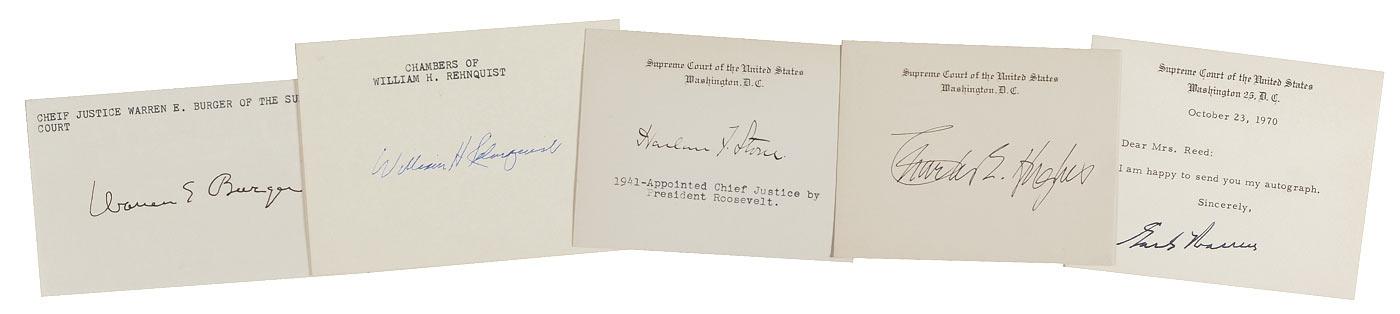 CHEIF JUSTICE WARREN E. BURGER OF THE SU
COURT
Warren E Burger
CHAMBERS OF
WILLIAM H. REHNQUIST
William H Rehnquist
Supreme Court of the United States
Washington, D.C.
Harlan F. Stone.
1941-Appointed Chief Justice by
President Roosevelt.
Supreme Court of the United States
Washington, D.C.
Charles E. Hughes
Supreme Court of the United States
Washington 25, D. C.
October 23, 1970
Dear Mrs. Reed:
I am happy to send you my autograph.
Sincerely,
Earl Warren